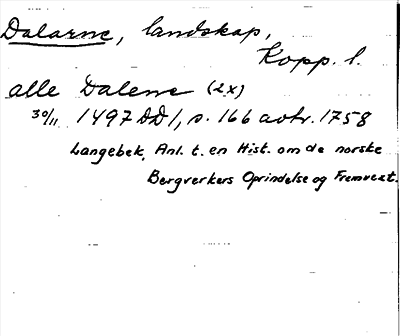 Dalarne, landskap,
Kopp. l.
alle Dalene (2x)
30/11 1497 DD 1, s. 166 avtr. 1758
Langebek, Anl. t. en Hist. om de norske
Bergverkers Oprindelse og Fremvext.